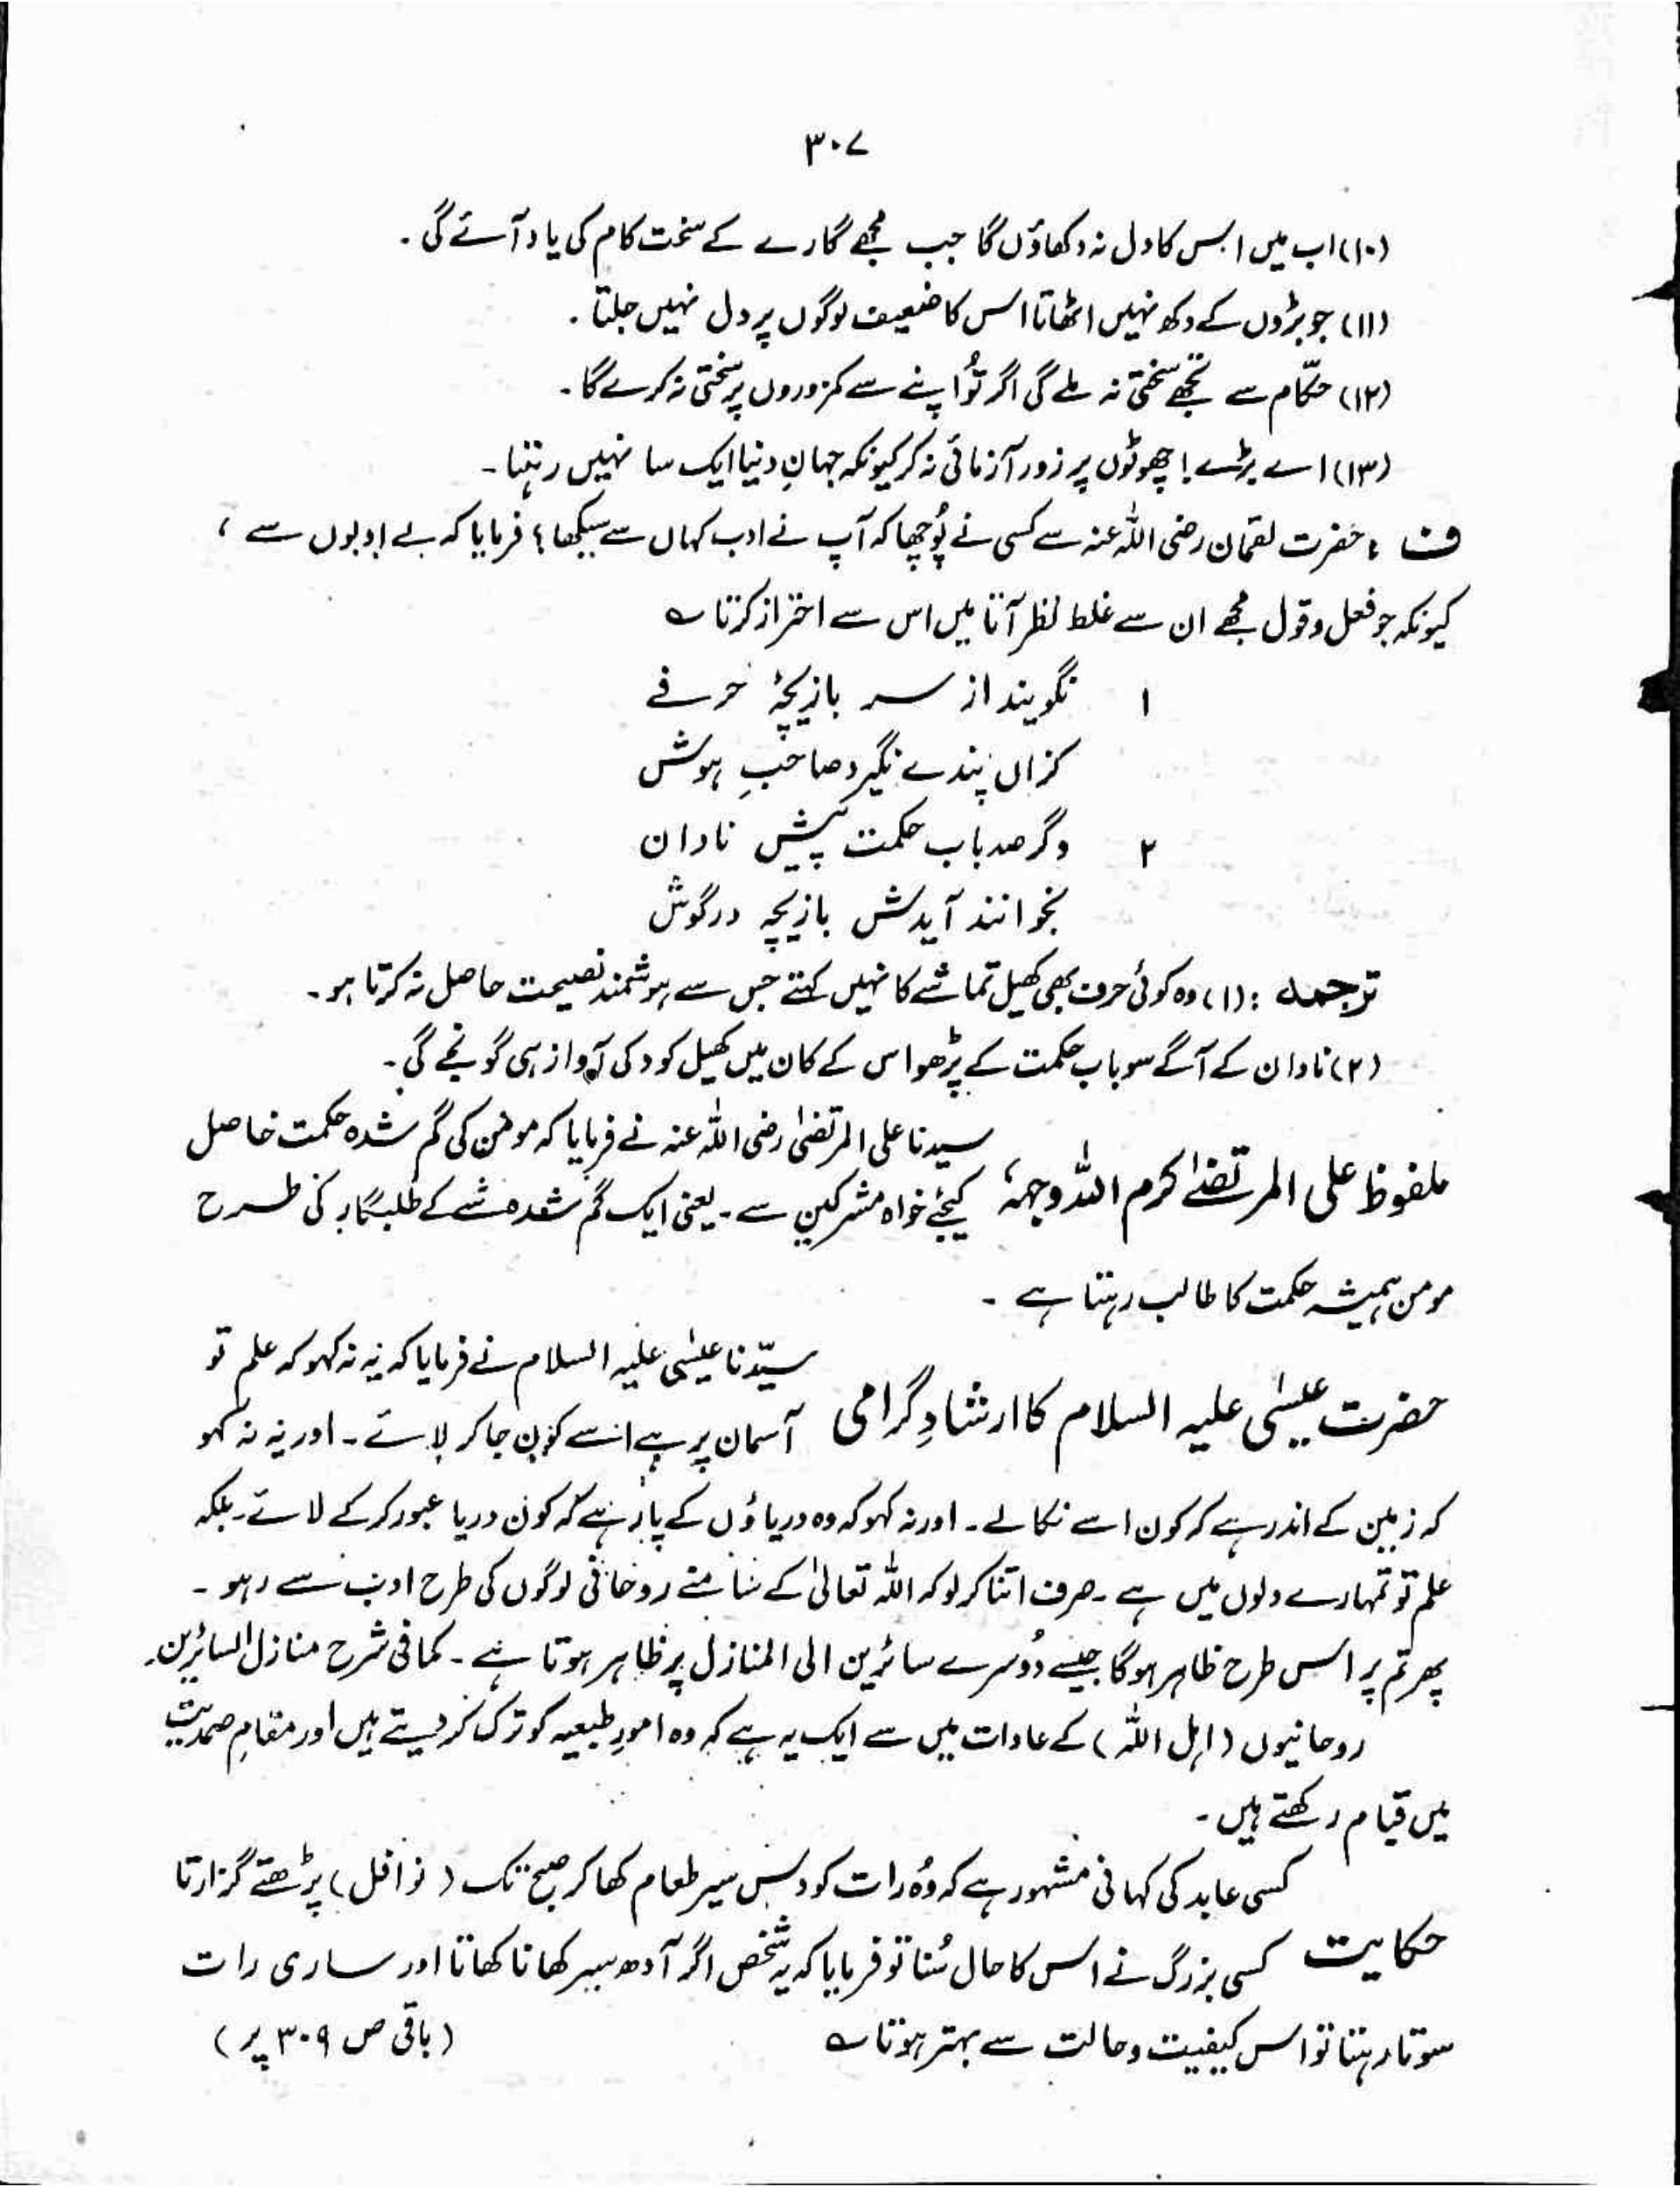 ۳۰۷
(۱۰) اب میں اس کا دل نہ دکھاؤں گا جب مجھے گارے کے سخت کام کی یاد آئے گی ۔
(۱۱) جو بڑوں کے دکھ نہیں اٹھاتا اس کا ضعیف لوگوں پر دل نہیں جلتا ۔
(۱۲) حکّام سے تجھے سختی نہ ملے گی اگر تُو اپنے سے کمزوروں پر سختی نہ کرے گا ۔
(۱۳) اے بڑے ! چھوٹوں پر زور آزمائی نہ کر کیونکہ جہانِ دنیا ایک سا نہیں رہتا ۔
ف : حضرت لقمان رضی اللہ عنہ سے کسی نے پُوچھا کہ آپ نے ادب کہاں سے سیکھا ؟ فرمایا کہ بے ادبوں سے ،
کیونکہ جو فعل و قول مجھے ان سے غلط نظر آتا میں اس سے احتراز کرتا ؎
۱ نگویند از سر بازیچۂ حرفے
کزاں پندے نگیرد صاحبِ ہوش
۲ وگر صد باب حکمت پیش ناداں
بخوانند آیدش بازیچہ در گوش
ترجمہ : (۱) وہ کوئی حرف بھی کھیل تماشے کا نہیں کہتے جس سے ہوشمند نصیحت حاصل نہ کرتا ہو ۔
(۲) نادان کے آگے سو باب حکمت کے پڑھو اس کے کان میں کھیل کود کی آواز ہی گونجے گی ۔
ملفوظ علی المرتضےٰ کرم اللہ وجہہٗ سیدنا علی المرتضیٰ رضی اللہ عنہ نے فرمایا کہ مومن کی گم شدہ حکمت حاصل
کیجئے خواہ مشرکین سے ۔ یعنی ایک گم شدہ شے کے طلبگار کی طرح
مومن ہمیشہ حکمت کا طالب رہتا ہے ۔
حضرت عیسٰی علیہ السلام کا ارشادِ گرامی سیّدنا عیسٰی علیہ السلام نے فرمایا کہ یہ نہ کہو کہ علم تو
آسمان پر ہے اسے کون جا کر لائے ۔ اور یہ نہ کہو
کہ زمین کے اندر ہے کہ کون اسے نکالے ۔ اور نہ کہو کہ وہ دریاؤں کے پار ہے کہ کون دریا عبور کر کے لائے ۔ بلکہ
علم تو تمہارے دلوں میں ہے ۔ صرف اتنا کر لو کہ اللہ تعالیٰ کے سامنے روحانی لوگوں کی طرح ادب سے رہو ۔
پھر تم پر اس طرح ظاہر ہو گا جیسے دُوسرے سائرین الی المنازل پر ظاہر ہوتا ہے ۔ کما فی شرح منازل السائرین ۔
روحانیوں ( اہل اللہ ) کے عادات میں سے ایک یہ ہے کہ وہ امورِ طبیعیہ کو ترک کر دیتے ہیں اور مقامِ صمدیت
میں قیام رکھتے ہیں ۔
حکایت کسی عابد کی کہانی مشہور ہے کہ وُہ رات کو دس سیر طعام کھا کر صبح تک ( نوافل ) پڑھتے گزارتا
کسی بزرگ نے اس کا حال سُنا تو فرمایا کہ یہ شخص اگر آدھ سیر کھانا کھاتا اور ساری رات
سوتا رہتا تو اس کیفیت و حالت سے بہتر ہوتا ؎ ( باقی ص ۳۰۹ پر )